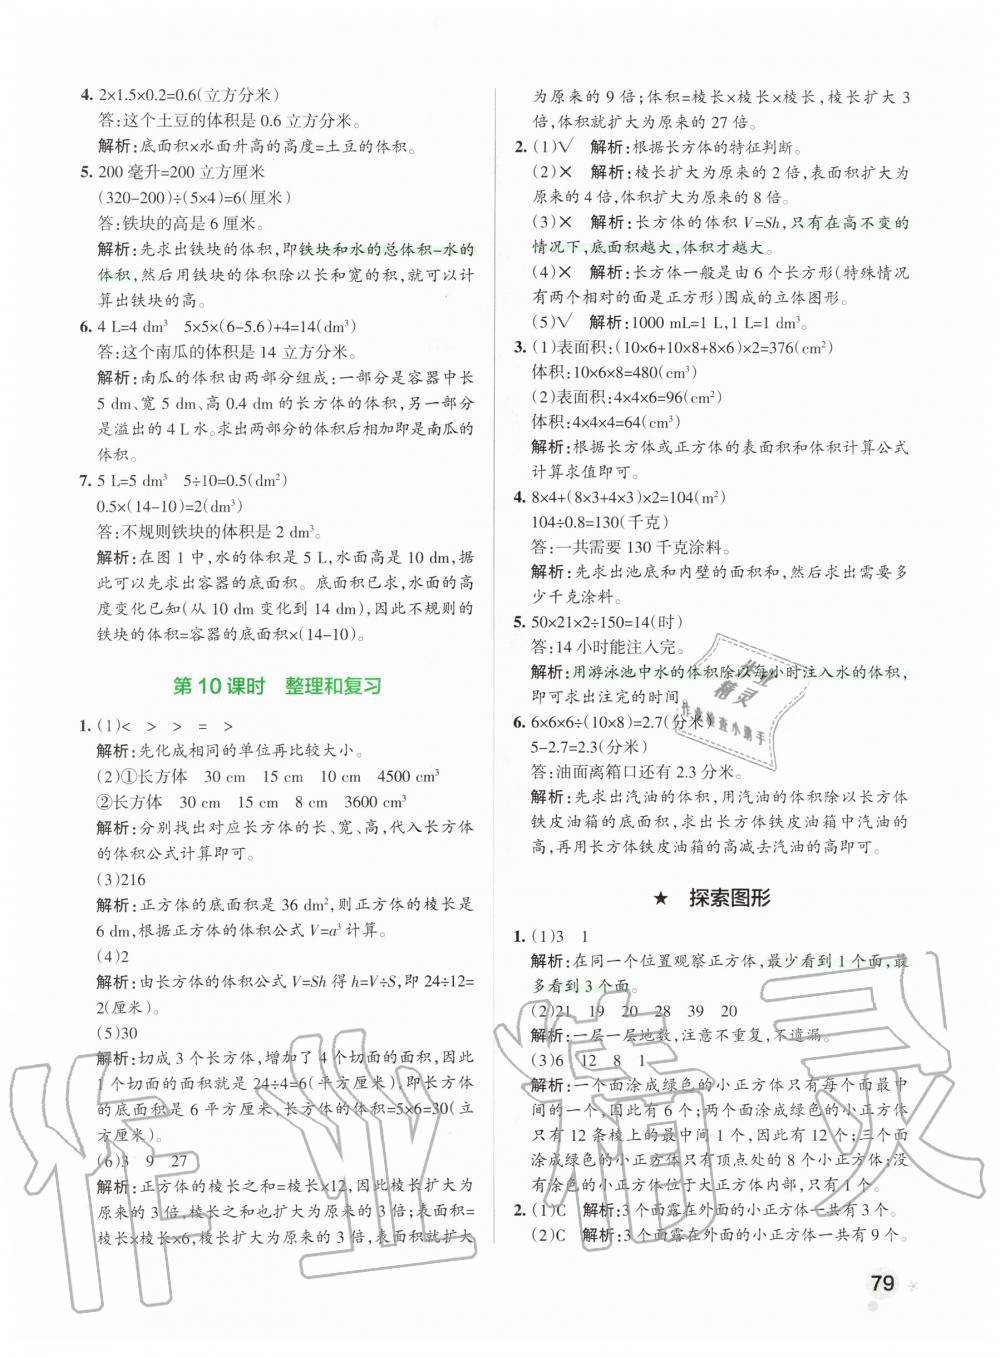 4. 2×1.5×0.2=0.6(立方分米)
答:这个土豆的体积是 0.6 立方分米。
解析:底面积×水面升高的高度=土豆的体积。
5. 200 毫升=200 立方厘米
(320-200)÷(5×4)=6(厘米)
答:铁块的高是 6 厘米。
解析:先求出铁块的体积,即铁块和水的总体积-水的
体积,然后用铁块的体积除以长和宽的积,就可以计
算出铁块的高。
6. 4 L=4 dm³ 5×5×(6-5.6)+4=14(dm³)
答:这个南瓜的体积是 14 立方分米。
解析:南瓜的体积由两部分组成:一部分是容器中长
5 dm、宽 5 dm、高 0.4 dm 的长方体的体积,另一部分
是溢出的 4 L 水。求出两部分的体积后相加即是南瓜的
体积。
7. 5 L=5 dm³ 5÷10=0.5(dm²)
0.5×(14-10)=2(dm³)
答:不规则铁块的体积是 2 dm³。
解析:在图 1 中,水的体积是 5 L,水面高是 10 dm,据
此可以先求出容器的底面积。底面积已求,水面的高
度变化已知(从 10 dm 变化到 14 dm),因此不规则的
铁块的体积=容器的底面积×(14-10)。
第 10 课时 整理和复习
1. (1)< > > = >
解析:先化成相同的单位再比较大小。
(2)①长方体 30 cm 15 cm 10 cm 4500 cm³
②长方体 30 cm 15 cm 8 cm 3600 cm³
解析:分别找出对应长方体的长、宽、高,代入长方体
的体积公式计算即可。
(3)216
解析:正方体的底面积是 36 dm²,则正方体的棱长是
6 dm,根据正方体的体积公式 V=a³ 计算。
(4)2
解析:由长方体的体积公式 V=Sh 得 h=V÷S,即 24÷12=
2(厘米)。
(5)30
解析:切成 3 个长方体,增加了 4 个切面的面积,因此
1 个切面的面积就是 24÷4=6(平方厘米),即长方体
的底面积是 6 平方厘米,长方体的体积=5×6=30(立
方厘米)。
(6)3 9 27
解析:正方体的棱长之和=棱长×12,因此棱长扩大为
原来的 3 倍,棱长之和也扩大为原来的 3 倍;表面积=
棱长×棱长×6,棱长扩大为原来的 3 倍,表面积就扩大
为原来的 9 倍;体积=棱长×棱长×棱长,棱长扩大 3
倍,体积就扩大为原来的 27 倍。
2. (1)√ 解析:根据长方体的特征判断。
(2)× 解析:棱长扩大为原来的 2 倍,表面积扩大为
原来的 4 倍,体积扩大为原来的 8 倍。
(3)× 解析:长方体的体积 V=Sh,只有在高不变的
情况下,底面积越大,体积才越大。
(4)× 解析:长方体一般是由 6 个长方形(特殊情况
有两个相对的面是正方形)围成的立体图形。
(5)√ 解析:1000 mL=1 L,1 L=1 dm³。
3. (1)表面积:(10×6+10×8+8×6)×2=376(cm²)
体积:10×6×8=480(cm³)
(2)表面积:4×4×6=96(cm²)
体积:4×4×4=64(cm³)
解析:根据长方体或正方体的表面积和体积计算公式
计算求值即可。
4. 8×4+(8×3+4×3)×2=104(m²)
104÷0.8=130(千克)
答:一共需要 130 千克涂料。
解析:先求出池底和内壁的面积和,然后求出需要多
少千克涂料。
5. 50×21×2÷150=14(时)
答:14 小时能注入完。
解析:用游泳池中水的体积除以每小时注入水的体积,
即可求出注完的时间。
6. 6×6×6÷(10×8)=2.7(分米)
5-2.7=2.3(分米)
答:油面离箱口还有 2.3 分米。
解析:先求出汽油的体积,用汽油的体积除以长方体
铁皮油箱的底面积,求出长方体铁皮油箱中汽油的
高,再用长方体铁皮油箱的高减去汽油的高即可。
★ 探索图形
1. (1)3 1
解析:在同一个位置观察正方体,最少看到 1 个面,最
多看到 3 个面。
(2)21 19 20 28 39 20
解析:一层一层地数,注意不重复,不遗漏。
(3)6 12 8 1
解析:一个面涂成绿色的小正方体只有每个面最中
间的一个,因此有 6 个;两个面涂成绿色的小正方体
只有 12 条棱上的最中间 1 个,因此有 12 个;三个面
涂成绿色的小正方体只有顶点处的 8 个小正方体;没
有涂色的小正方体位于大正方体内部,只有 1 个。
2. (1)C 解析:3 个面露在外面的小正方体一共有 3 个。
(2)C 解析:3 个面露在外面的小正方体一共有 9 个。
79
作业
精灵
作业检查小助手
作业精灵